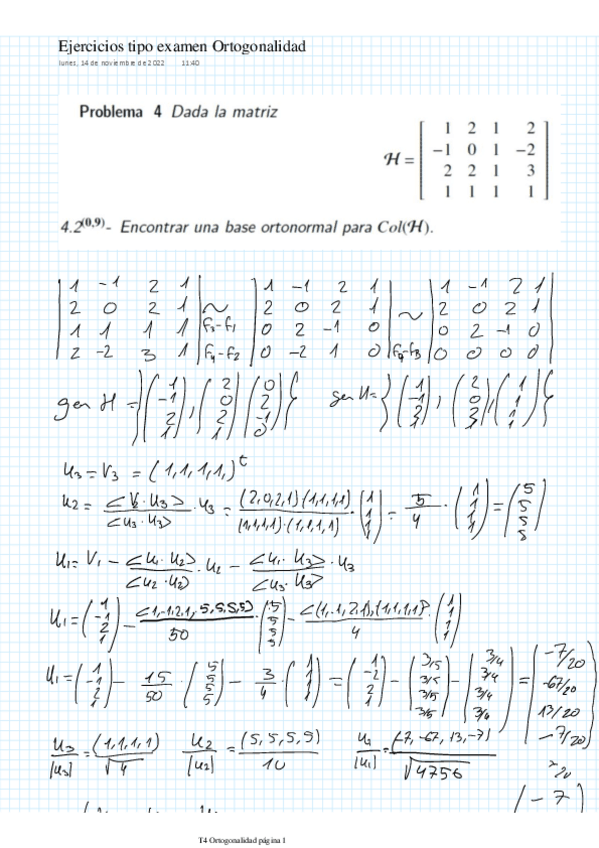 Ejercicios tipo examen Ortogonalidad
lunes, 14 de noviembre de 2022 11:40
Problema 4 Dada la matriz
H = [ 1 2 1 2
-1 0 1 -2
2 2 1 3
1 1 1 1 ]
4.2(0,9)- Encontrar una base ortonormal para Col(H).
| 1 -1 2 1 | | 1 -1 2 1 | | 1 -1 2 1 |
| 2 0 2 1 | ~ | 2 0 2 1 | ~ | 2 0 2 1 |
| 1 1 1 1 | F3-F1 | 0 2 -1 0 | | 0 2 -1 0 |
| 2 -2 3 1 | F4-F2 | 0 -2 1 0 | F4-F3 | 0 0 0 0 |
gen H = { (1 -1 2 1), (2 0 2 1), (0 2 -1 0) } gen H = { (1 -1 2 1), (2 0 , (1 1 1 1) }
u3 = v3 = (1,1,1,1,)t
u2 = <v2 · u3> / <u3 · u3> · u3 = (2,0,2,1)(1,1,1,1) / (1,1,1,1)·(1,1,1,1) · (1 1 1 1) = 5/4 · (1 1 1 1) = (5 5 5 5)
u1 = v1 - <u1 · u2> / <u2 · u2> · u2 - <u1 · u3> / <u3 · u3> · u3
u1 = (1 -1 2 1) - <1,-1,2,1, 5,5,5,5> / 50 · (5 5 5 5) - <(1,-1,2,1),(1,1,1,1)> / 4 · (1 1 1 1)
u1 = (1 -1 2 1) - 15/50 · (5 5 5 5) - 3/4 · (1 1 1 1) = (1 -2 2 1) - (3/5 3/5 3/5 3/5) - (3/4 3/4 3/4 3/4) = (-7/20 -67/20 13/20 -7/20)
u3/|u3| = (1,1,1,1)/√4 u2/|u2| = (5,5,5,5)/10 u1/|u1| = (-7,-67,13,-7)/√4756
(-7)
T4 Ortogonalidad página 1